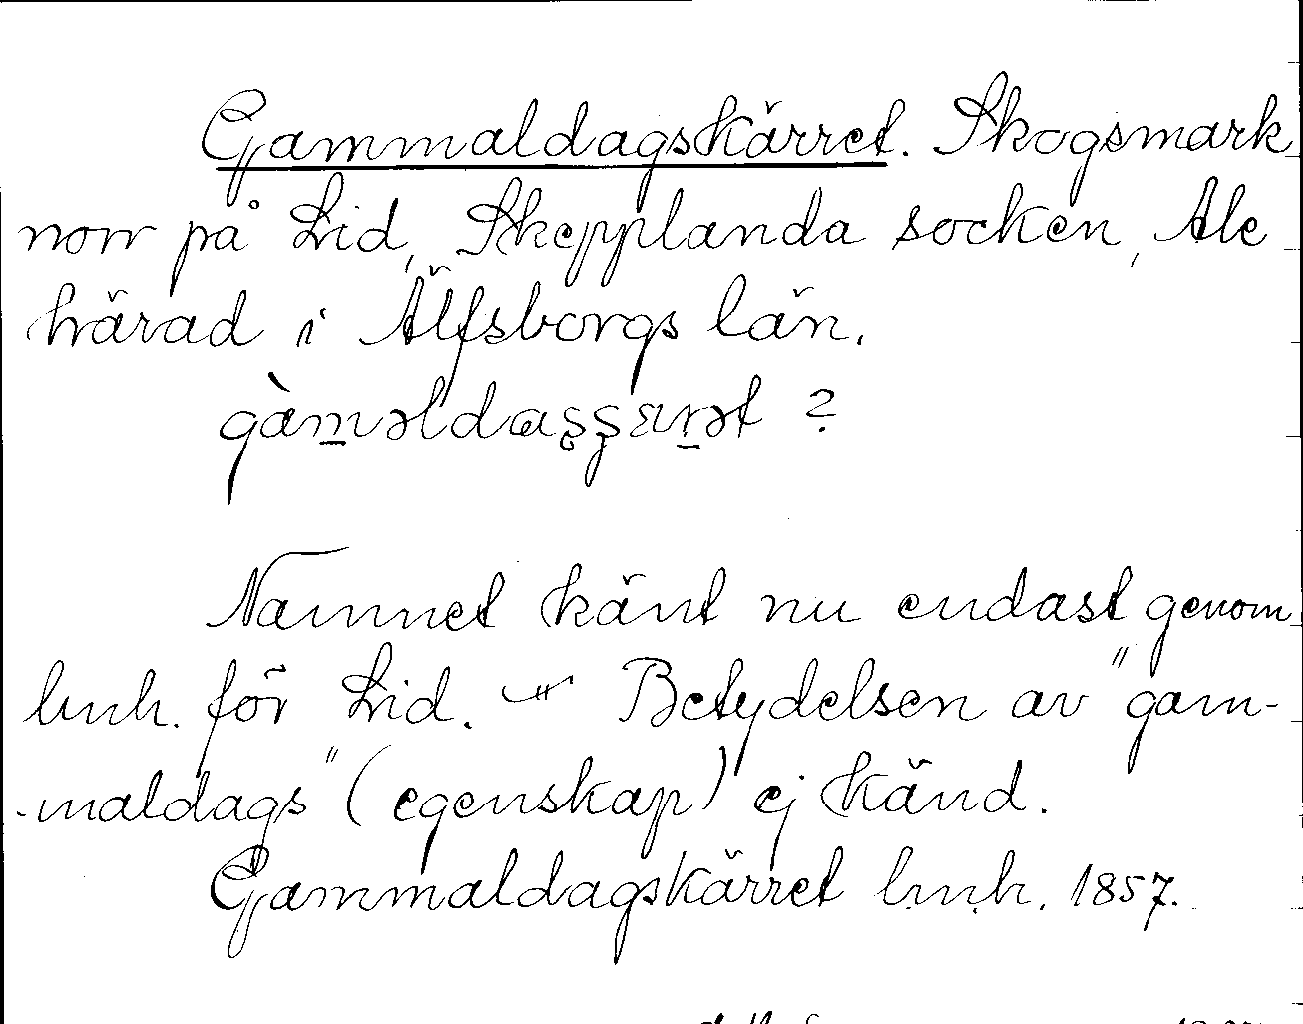 Gammaldagskärret. Skogsmark
norr på Lid, Skepplanda socken, Ale
härad i Älfsborgs län.
?
Namnet känt nu endast genom
lmh. för Lid. – Betydelsen av "gam-
-maldags" (egenskap) ej känd.
Gammaldagskärret lmh. 1857.